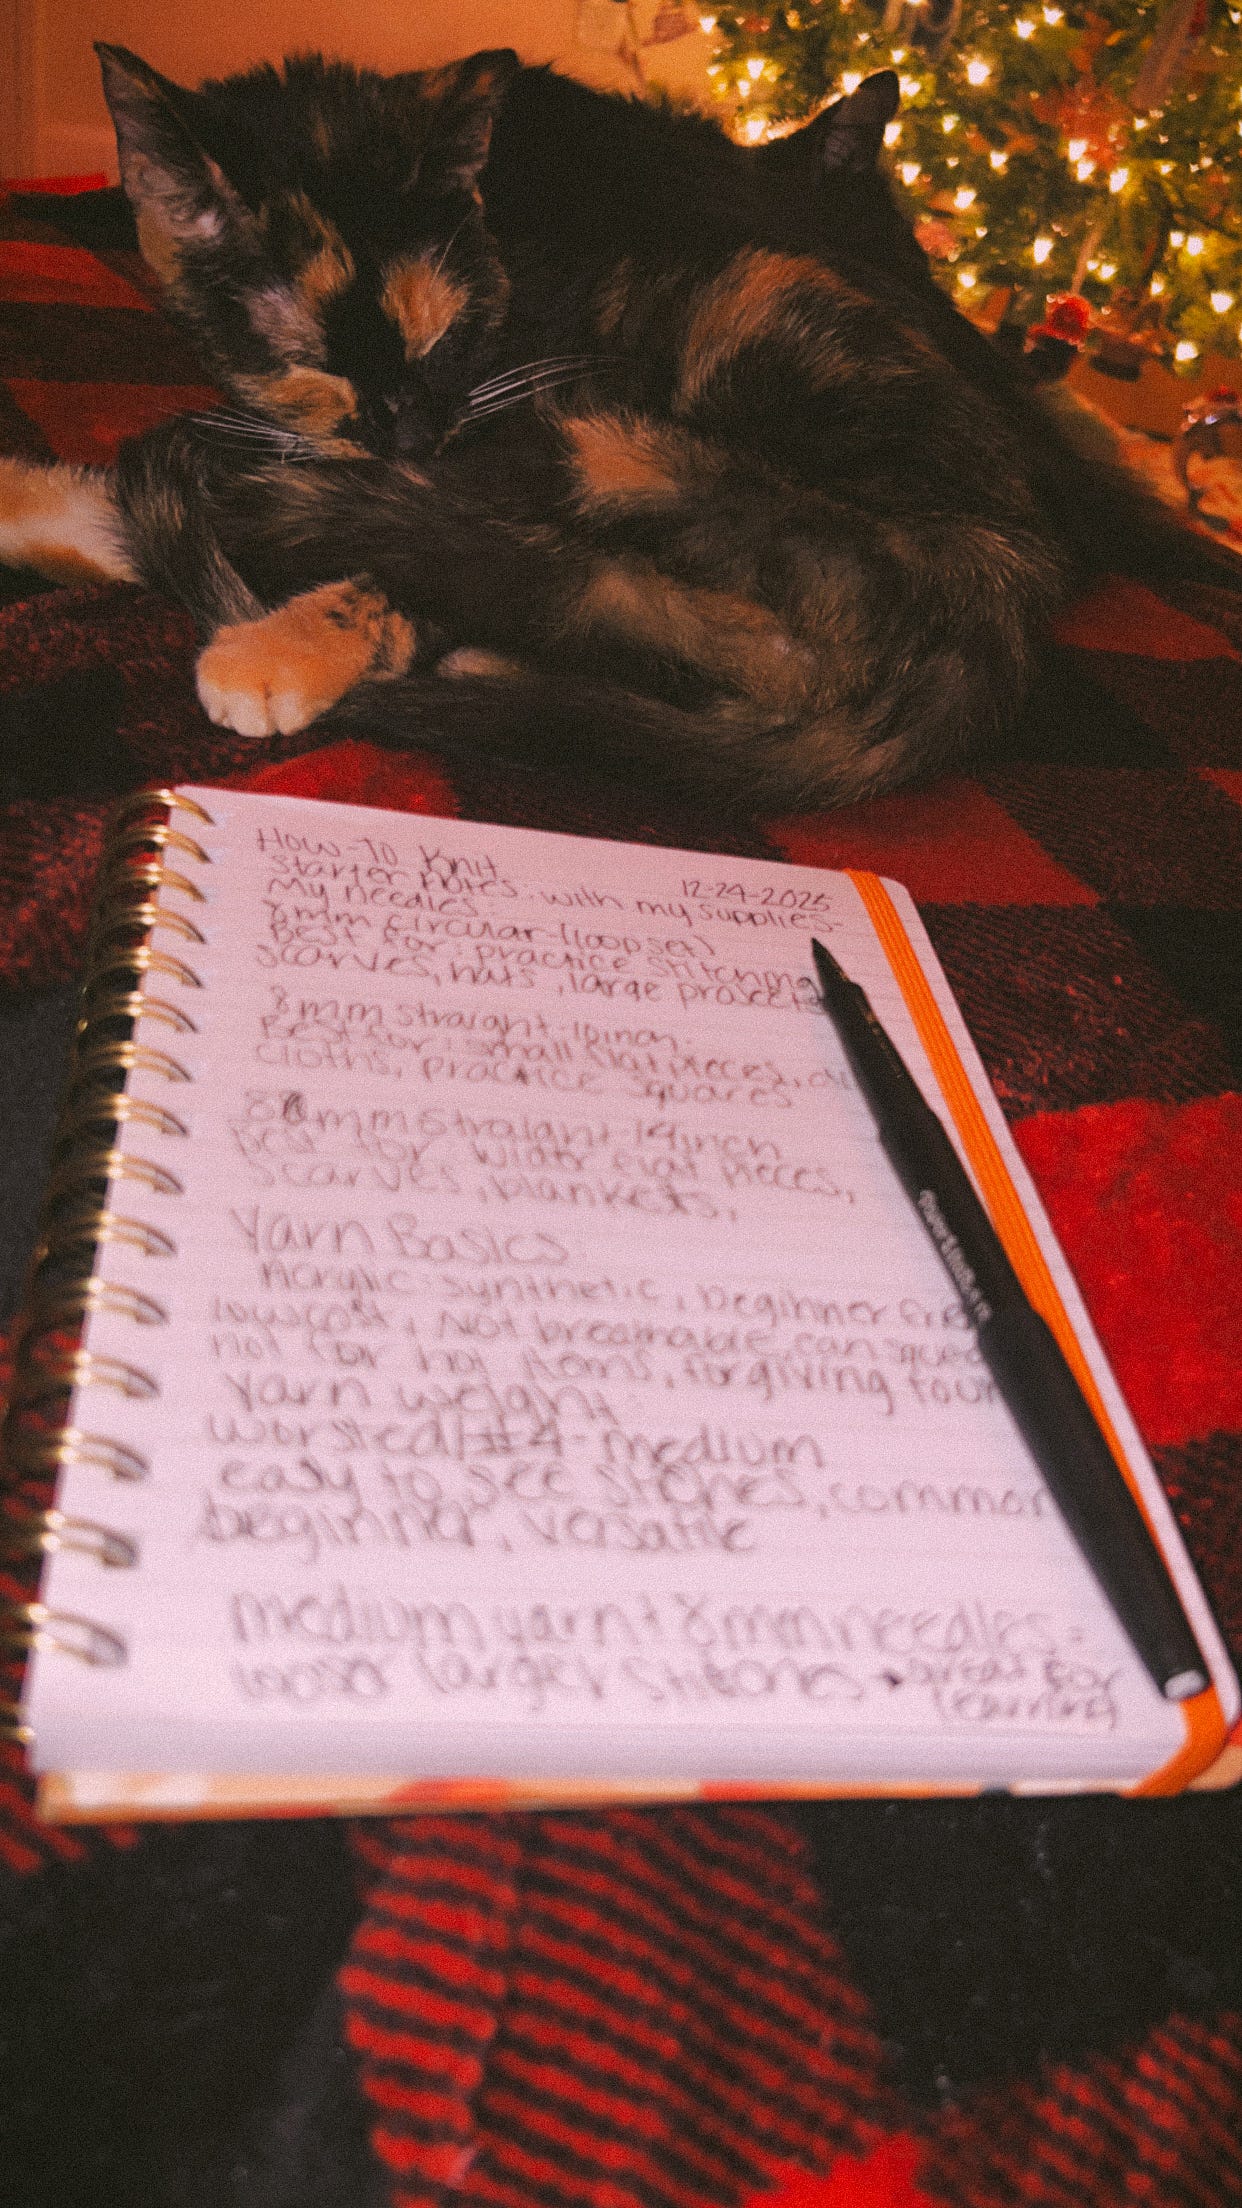 How-To Knit
12-24-2025
Starter Notes: with my supplies-
My needles:
8mm circular-(loopset)
Best for: practice stitching
scarves, hats, large projects
8mm straight-10inch.
Best for: small flat pieces,
cloths, practice squares
8mm straight-14inch
Best for wider flat pieces,
scarves, blankets,
Yarn Basics:
Acrylic: synthetic, beginner
lowcost, Not breathable, can
not for hot items, forgiving
Yarn weight:
worsted/#4-medium
easy to see stitches, common
beginner, versatile
medium yarn+8mm needles-
looser larger stitches great for
learning